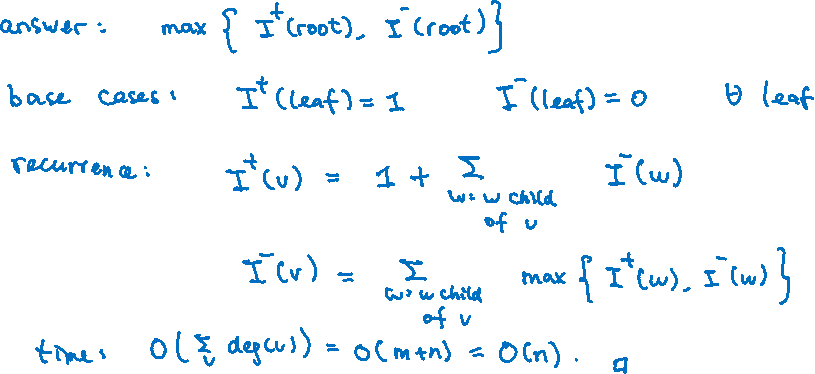 answer: max { I⁺(root), I⁻(root) }
base cases: I⁺(leaf) = 1 I⁻(leaf) = 0 ∀ leaf
recurrence: I⁺(v) = 1 + Σ I⁻(w)
w: w child
of v
I⁻(v) = Σ max { I⁺(w), I⁻(w) }
w: w child
of v
time: O(Σ deg(v)) = O(m+n) = O(n). □
v